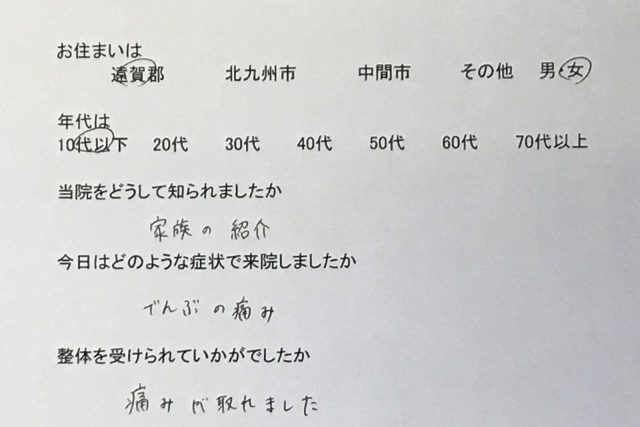 お住まいは
遠賀郡 北九州市 中間市 その他 男・女
年代は
10代以下 20代 30代 40代 50代 60代 70代以上
当院をどうして知られましたか
家族の紹介
今日はどのような症状で来院しましたか
でんぶの痛み
整体を受けられていかがでしたか
痛みが取れました